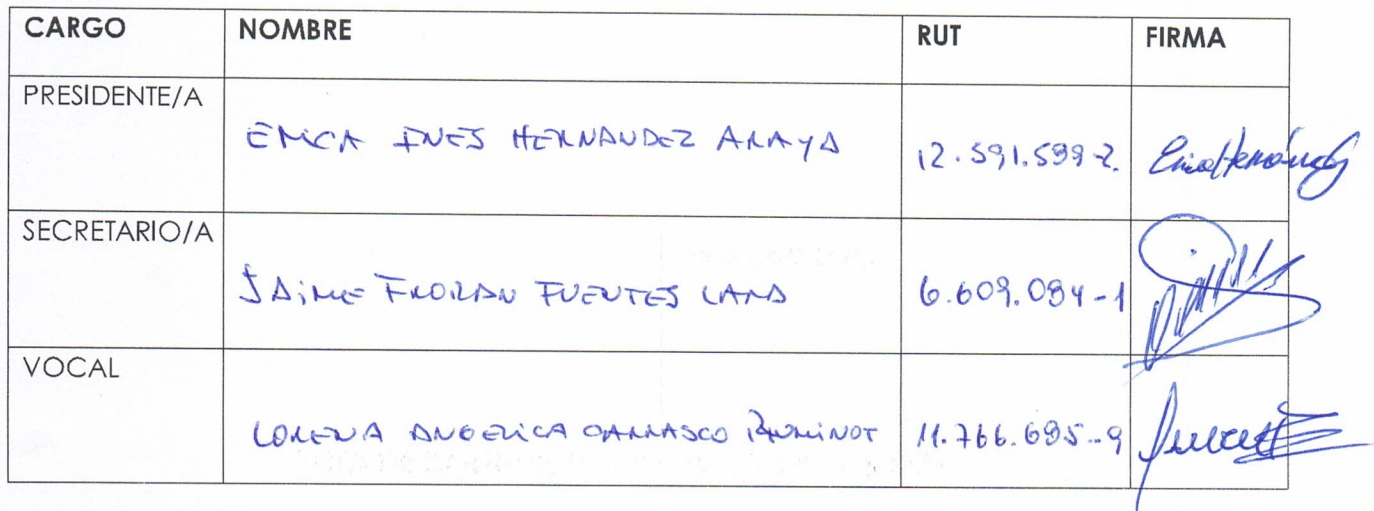 CARGO NOMBRE RUT FIRMA
PRESIDENTE/A
ERICA INES HERNANDEZ ARAYA 12.591.599-2. Erica Hernández
SECRETARIO/A
JAIME FROILAN FUENTES LARA 6.609.094-1
VOCAL
LORENA ANGELICA CARRASCO 11.766.695-9